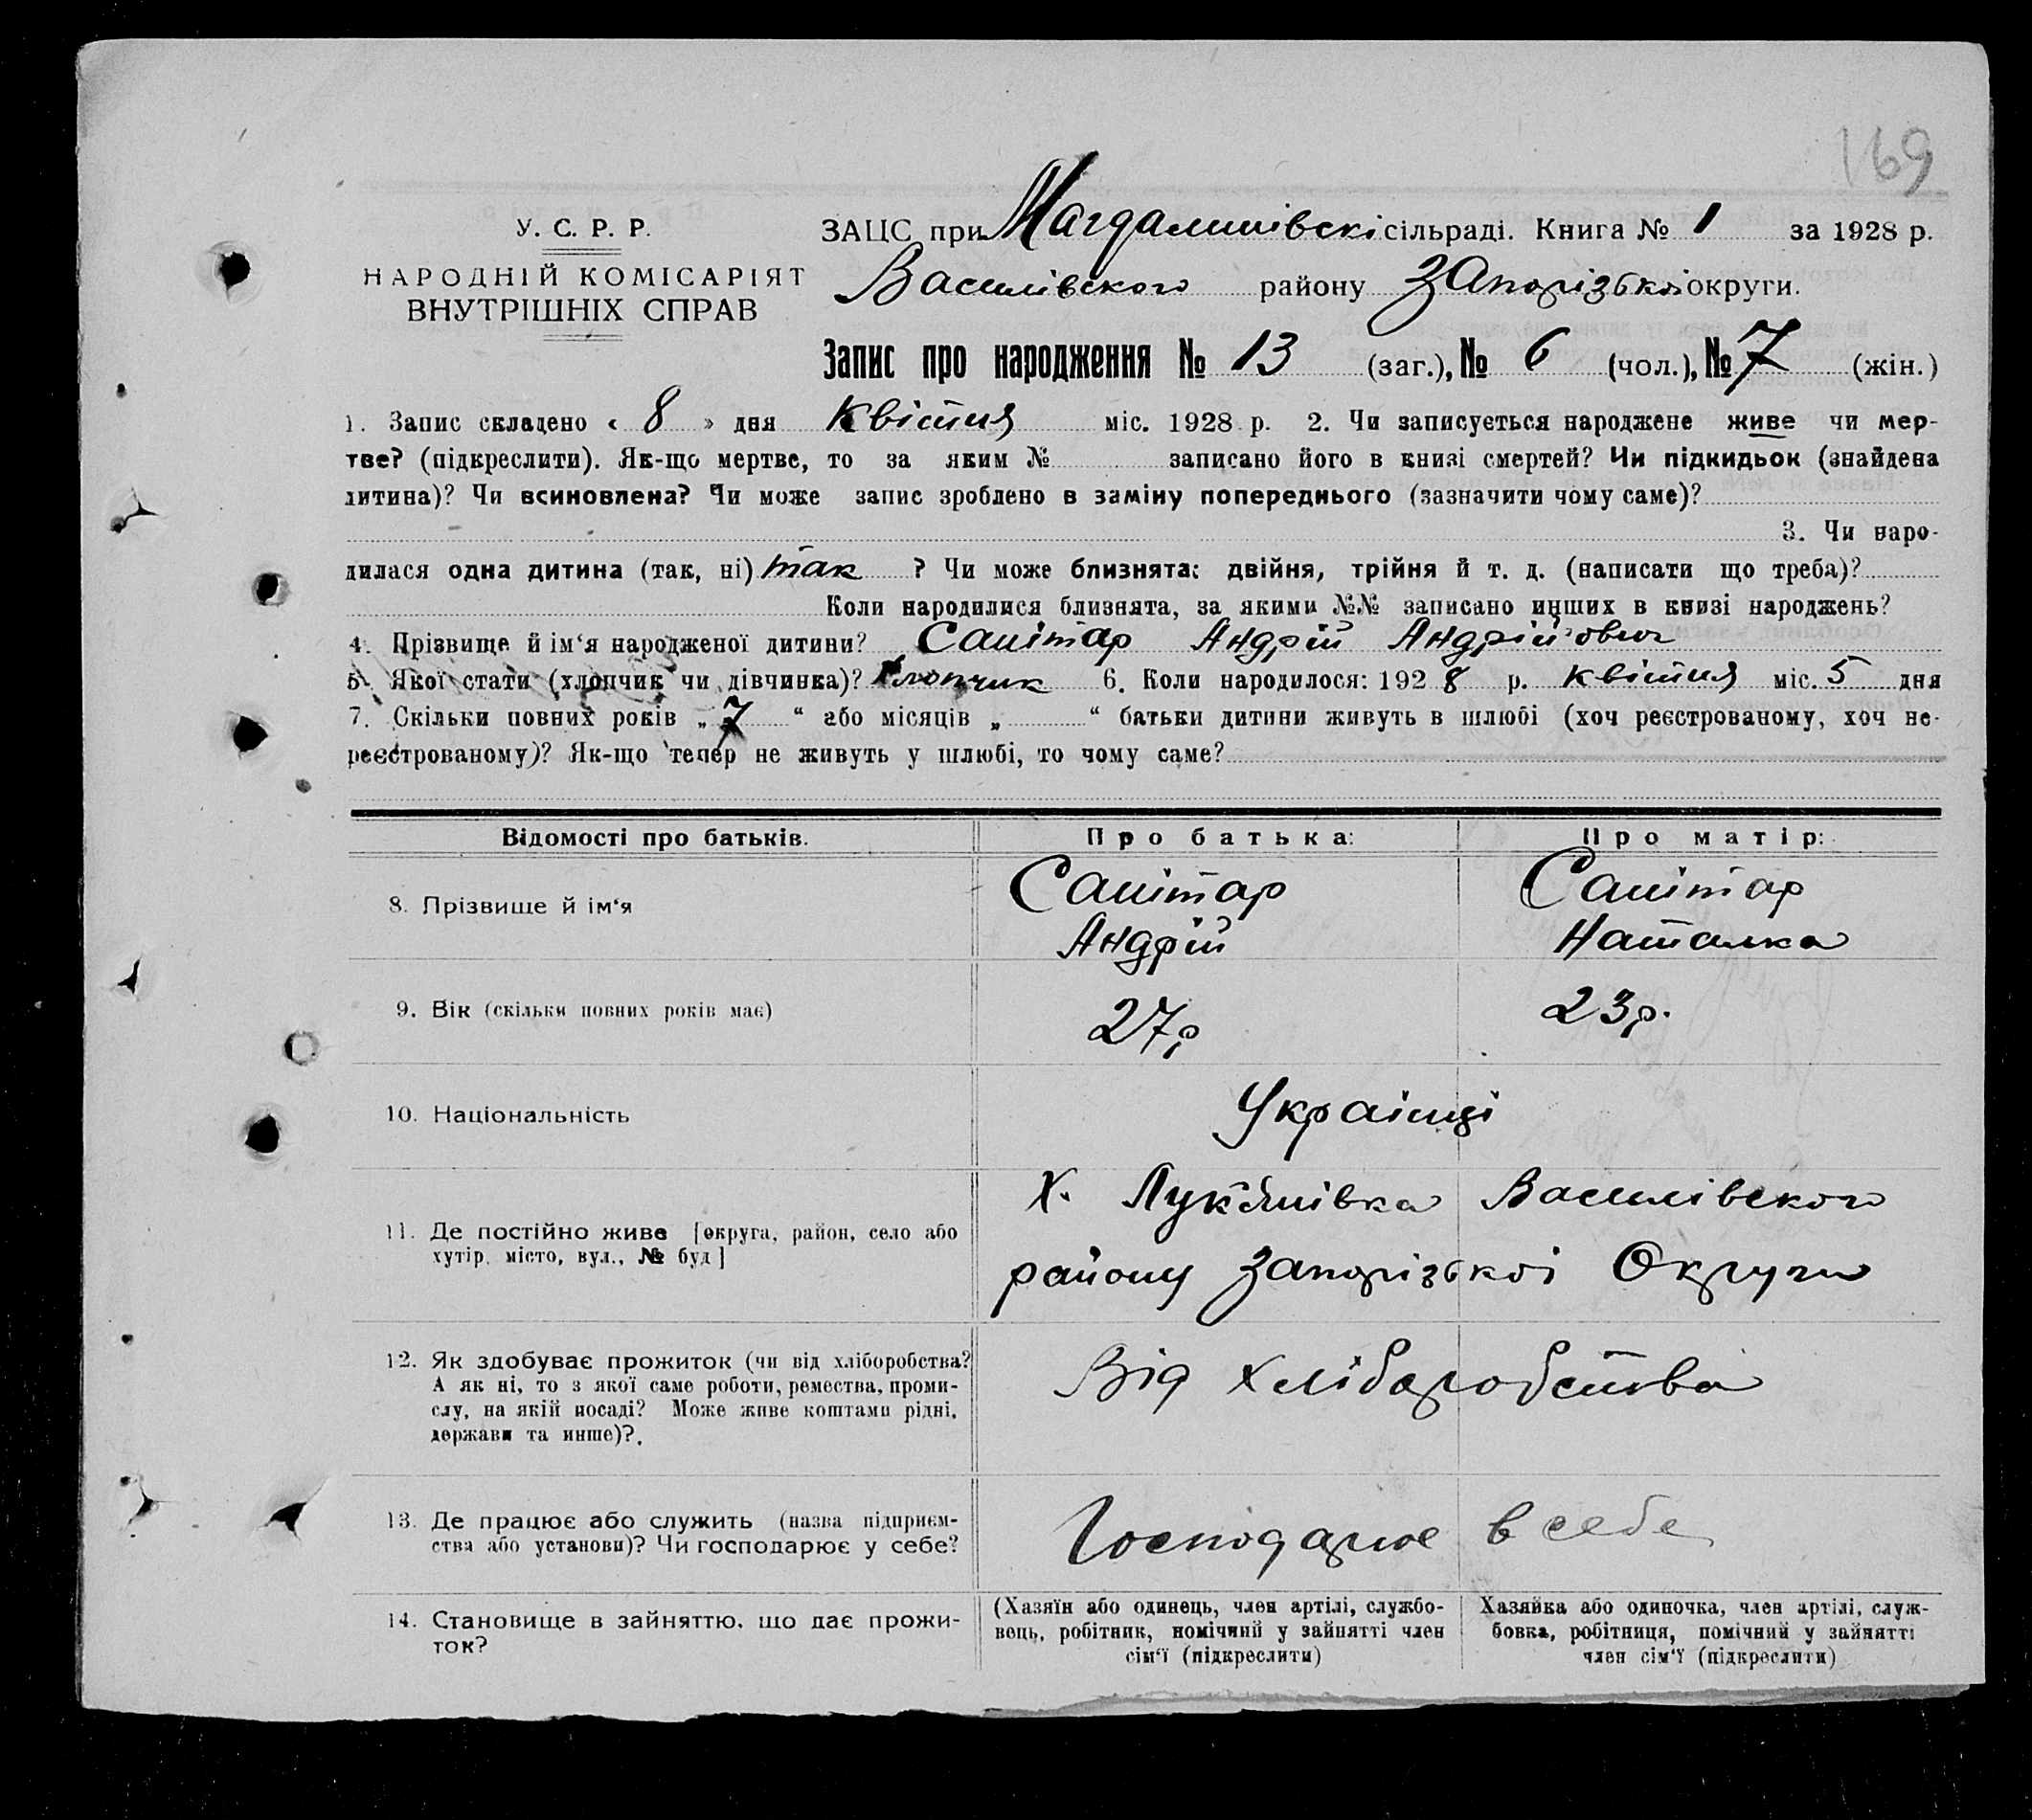 169
У. С. Р. Р.
НАРОДНІЙ КОМІСАРІЯТ
ВНУТРІШНІХ СПРАВ
ЗАЦС при Магдалинівскі сільраді. Книга № 1 за 1928 р.
Василівского району Запорізькоі округи.
Запис про народження № 13 (заг.), № 6 (чол.), № 7 (жін.)
1. Запис складено « 8 » дня Квітня міс. 1928 р. 2. Чи записується народжене живе чи мер-
тве? (підкреслити). Як-що мертве, то за яким № записано його в книзі смертей? Чи підкидьок (знайдена
дитина)? Чи всиновлена? Чи може запис зроблено в заміну попереднього (зазначити чому саме)?
3. Чи наро-
дилася одна дитина (так, ні) так ? Чи може близнята: двійня, трійня й т. д. (написати що треба)?
Коли народилися близнята, за якими №№ записано инших в книзі народжень?
4. Прізвище й ім‘я народженої дитини? Санітар Андрій Андрійович
5. Якої стати (хлопчик чи дівчинка)? Хлопчик 6. Коли народилося: 1928 р. квітня міс. 5 дня
7. Скільки повних років „ 7 “ або місяців „ “ батьки дитини живуть в шлюбі (хоч реєстрованому, хоч не-
реєстрованому)? Як-що тепер не живуть у шлюбі, то чому саме?
Відомості про батьків. Про батька: Про матір:
8. Прізвище й ім‘я Санітар Андрій Санітар Наталка
9. Вік (скільки повних років має) 27р 23р.
10. Національність Украінці
11. Де постійно живе [округа, район, село або
хутір, місто, вул., № буд]
Х. Лук'янівка Василівского
району Запорізькоі Округи
12. Як здобуває прожиток (чи від хліборобства?
А як ні, то з якої саме роботи, ремества, проми-
слу, на якій посаді? Може живе коштами рідні,
держави та инше)?.
Від хліборобства
13. Де працює або служить (назва підприєм-
ства або установи)? Чи господарює у себе?
Господарює в себе
14. Становище в зайняттю, що дає прожи-
ток?
(Хазяїн або одинець, член артілі, службо-
вець, робітник, помічний у зайнятті член
сім‘ї (підкреслити)
Хазяйка або одиночка, член артілі, служ-
бовка, робітниця, помічний у зайнятті
член сім‘ї (підкреслити)